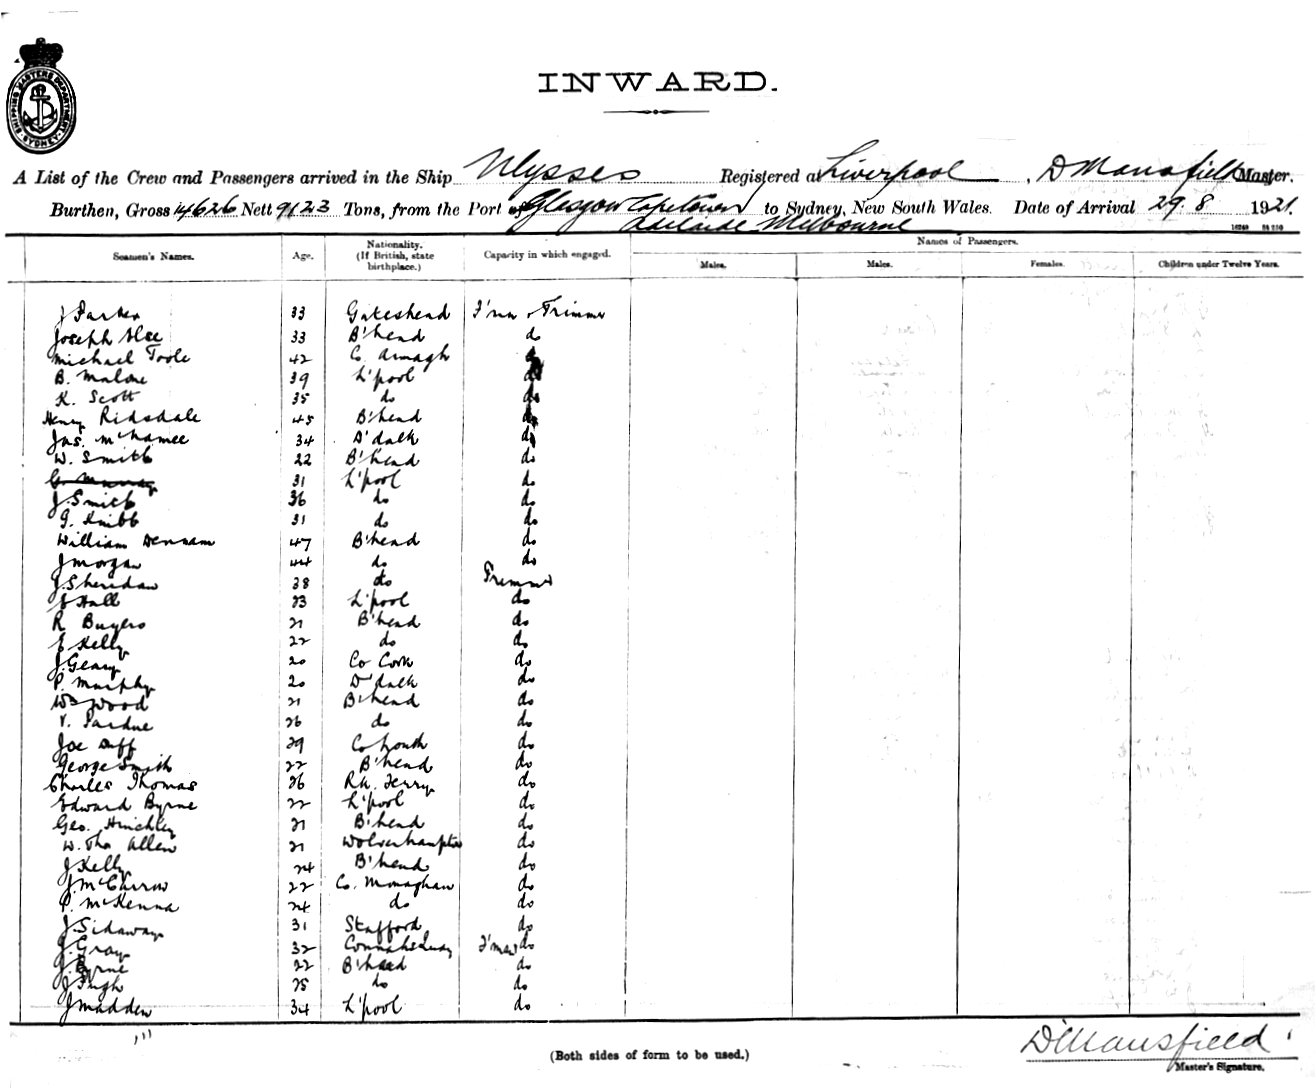 SHIPPING MASTERS DEPARTMENT SYDNEY
INWARD.
A List of the Crew and Passengers arrived in the Ship Ulysses Registered at Liverpool, D Mansfield Master.
Burthen, Gross 14626 Nett 9123 Tons, from the Port of Glasgow Capetown to Sydney, New South Wales. Date of Arrival 29. 8 1921.
Adelaide Melbourne
Seamen's Names. Age. Nationality. (If British, state birthplace.) Capacity in which engaged. Names of Passengers.
Males. Males. Females. Children under Twelve Years.
J Parker 33 Gateshead F'man & Trimmer
Joseph 33 B'head do
Michael Toole 42 Co. Armagh do
B. Malone 39 L'pool do
K. Scott 35 do do
Henry Ridsdale 45 B'head do
Jas. McNamee 34 D'dalk do
W. Smith 22 B'head do
G. Murray 31 L'pool do
J. Smith 36 do do
G. Knibb 31 do do
William Dennam 47 B'head do
J Morgan 44 do do
J Sheridan 38 do Trimmer
Hall 23 L'pool do
R Buyers 21 B'head do
E Kelly 22 do do
J. Geary 20 Co Cork do
P. Murphy 20 D'dalk do
Wm Wood 21 B'head do
V. Pardue 26 do do
Joe Duff 29 Co Louth do
George Smith 22 B'head do
Charles Thomas 26 Rk. Ferry do
Edward Byrne 22 L'pool do
Geo. Hinchley 21 B'head do
W. Tho Allen 21 Wolverhampton do
J Kelly 24 B'head do
J. McCarron 22 Co. Monaghan do
P. McKenna 24 do do
J. Sidaway 31 Stafford do
J. Gray 32 Connahs Quay F'man do
J. Byrne 22 B'head do
J Pugh 25 do do
J Madden 34 L'pool do
(Both sides of form to be used.)
D Mansfield
Master's Signature.